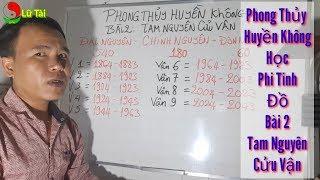 Lữ Tài
PHONG THỦY HUYỀN KHÔNG
BÀI 2 TAM NGUYÊN CỬU VẬN
ĐẠI NGUYÊN - CHÍNH NGUYÊN - ĐƠN
180
60
1 = 1864 - 1883
1884 - 1903
1904 - 1923
1924 - 1943
1944 - 1963
Vận 6 = 1964 - 1983
Vận 7 = 1984 - 2003
Vận 8 = 2004 - 2023
Vận 9 = 2024 - 2043
Phong Thủy
Huyền Không
Học
Phi Tinh
Đồ
Bài 2
Tam Nguyên
Cửu Vận